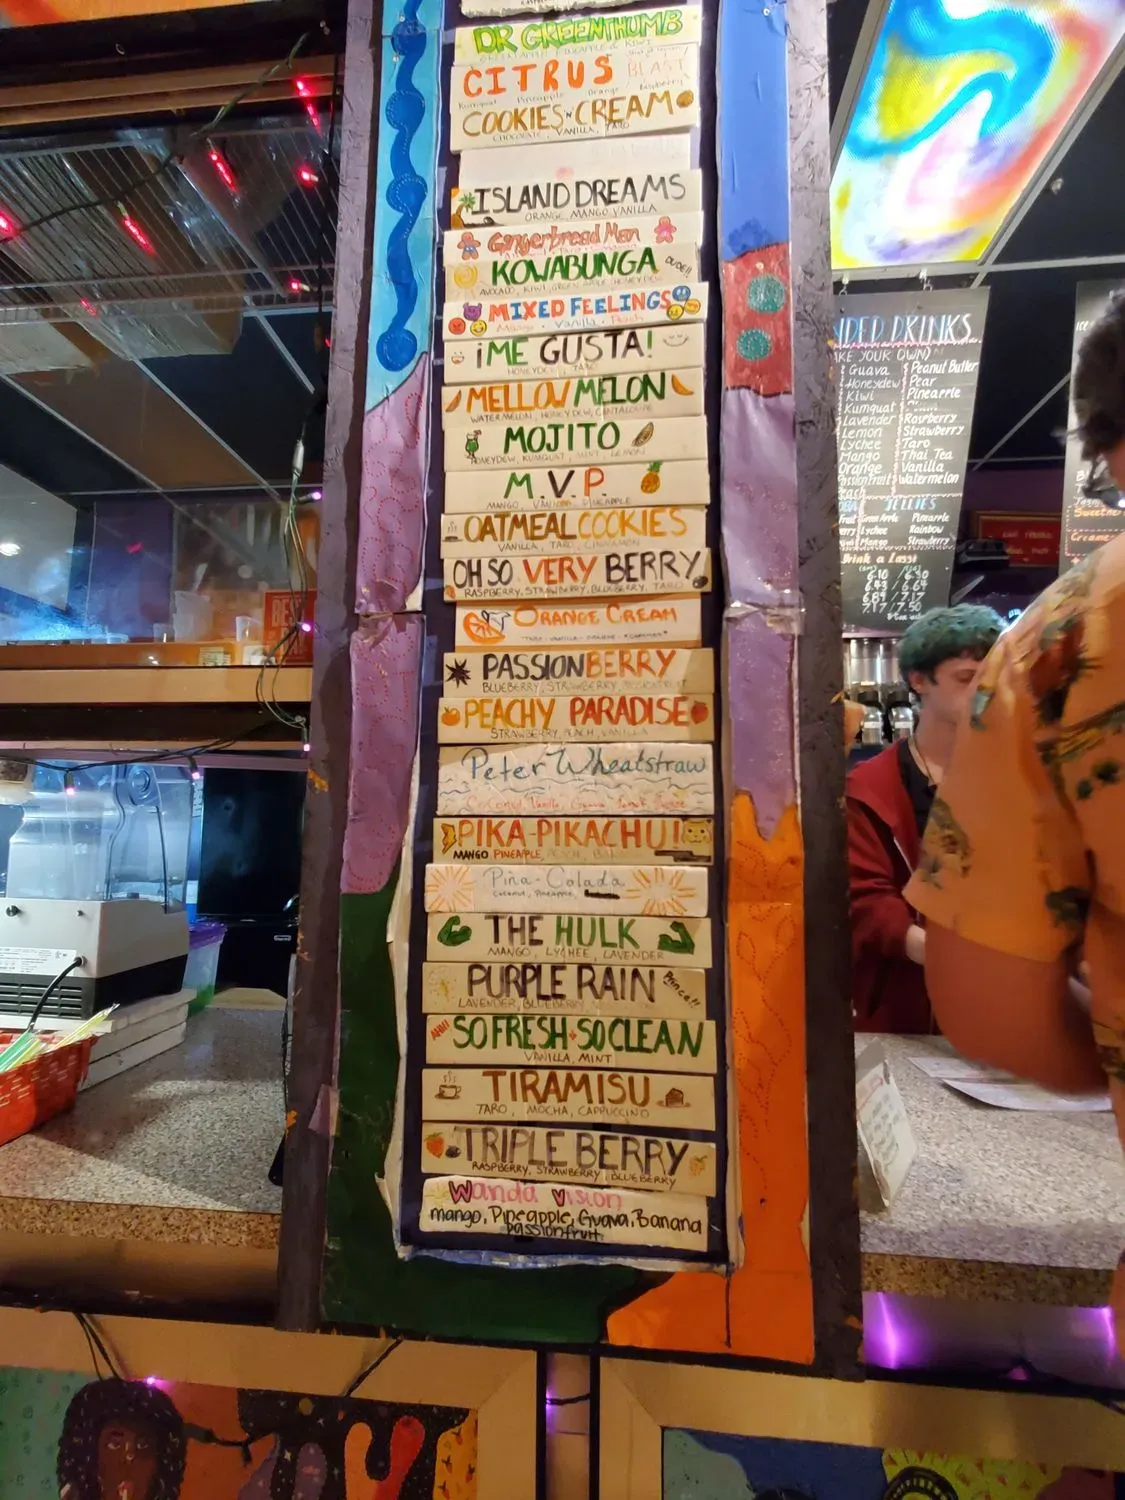 DR GREENTHUMB
GREEN APPLE, PINEAPPLE & KIWI
CITRUS BLAST
Kumquat Pineapple Orange Raspberry
COOKIES N CREAM
CHOCOLATE, VANILLA, TARO
ISLAND DREAMS
ORANGE, MANGO, VANILLA
Gingerbread Man
KOWABUNGA DUDE!!
AVOCADO, KIWI, GREEN APPLE, HONEYDEW
MIXED FEELINGS
Mango · Vanilla · Peach
¡ME GUSTA!
HONEYDEW, TARO
MELLOW MELON
WATERMELON, HONEYDEW, CANTALOUPE
MOJITO
HONEYDEW, KUMQUAT, MINT, LEMON
M.V.P.
MANGO, VANILLA, PINEAPPLE
OATMEAL COOKIES
VANILLA, TARO, CINNAMON
OH SO VERY BERRY
RASPBERRY, STRAWBERRY, BLUEBERRY, TARO
ORANGE CREAM
PASSIONBERRY
BLUEBERRY, STRAWBERRY, PASSIONFRUIT
PEACHY PARADISE
STRAWBERRY, PEACH, VANILLA
Peter Wheatstraw
Coconut, Vanilla, Guava
PIKA-PIKACHU!
MANGO PINEAPPLE, PEACH,
Piña-Colada
Coconut, Pineapple,
THE HULK
MANGO, LYCHEE, LAVENDER
PURPLE RAIN Prince!!
LAVENDER, BLUEBERRY
SO FRESH·SO CLEAN
VANILLA, MINT
TIRAMISU
TARO, MOCHA, CAPPUCCINO
TRIPLE BERRY
RASPBERRY, STRAWBERRY, BLUEBERRY
Wanda Vision
mango, Pineapple, Guava, Banana
Passionfruit
NDED DRINKS
AKE YOUR OWN)
Guava Peanut Butter
Honeydew Pear
Kiwi Pineapple
Kumquat
Lavender Raspberry
Lemon Strawberry
Lychee Taro
Mango Thai Tea
Orange Vanilla
Passionfruit Watermelon
JELLIES
Green Apple Pineapple
Lychee Rainbow
Mango Strawberry
Drink a Lass!
6.10 6.30
6.43 6.64
6.89 7.17
7.17 7.50
Sweetne
Creame